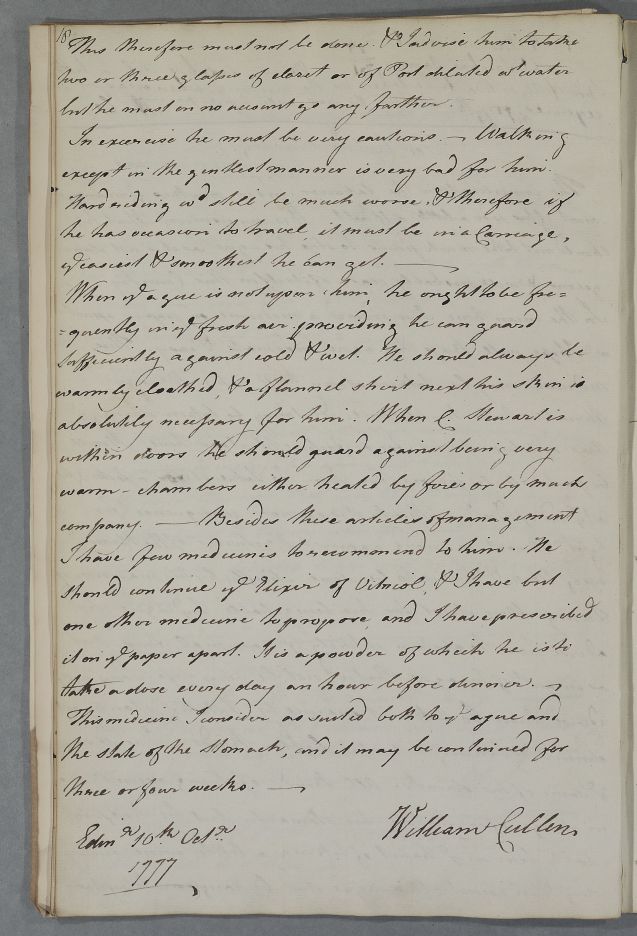 18
This therefore must not be done. & I advise him to take
two or three glasses of claret or of Port diluted wt water
but he must on no account go any farther.
In exercise he must be very cautious. — Walking
except in the gentlest manner is very bad for him.
Hard riding wd still be much worse, & therefore if
he has occasion to travel, it must be in a Carriage,
ye easiest & smoothest he can get. —
When ye ague is not upon him, he ought to be fre=
=quently in ye fresh air providing he can guard
sufficiently against cold & wet. He should always be
warmly cloathed, & a flannel shirt next his skin is
absolutely necessary for him. When C. Stewart is
within doors he should guard against being very
warm – chambers either heated by fires or by much
company. — Besides these articles of management
I have few medicines to recommend to him. He
should continue ye Elixir of Vitriol, & I have but
one other medicine to propose, and I have prescribed
it on ye paper apart. It is a powder of which he is to
take a dose every day an hour before dinner. —
This medicine I consider as suited both to ye ague and
the state of the stomach, and it may be continued for
three or four weeks. —
William Cullen
Edinr 10th Octr
1777